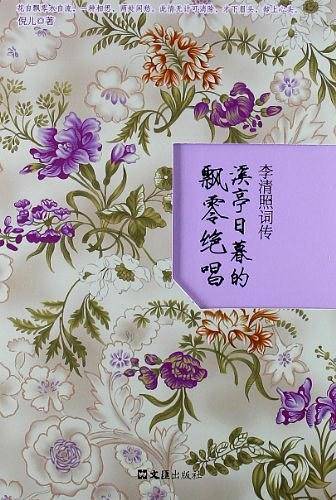 花自飘零水自流。一种相思，两处闲愁。此情无计可消除，才下眉头，却上心头。
倪儿◎著
李清照词传
溪亭日暮的
飘零绝唱
文汇出版社